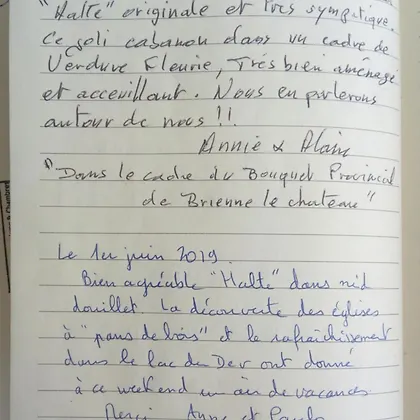 "Halte" originale et très sympatique.
Ce joli cabanon dans un cadre de
Verdure fleurie, Très bien aménagé
et acceuillant. Nous en parlerons
autour de nous !!
Annie & Alain
"Dans le cadre du Bouquet Provincial
de Brienne le chateau"
Le 1er juin 2019.
Bien agréable "Halte" dans nid
douillet. La découverte des églises
à "pans de bois" et le rafraîchissement
dans le lac du Der ont donné
à ce weekend un air de vacances
Merci Anne et